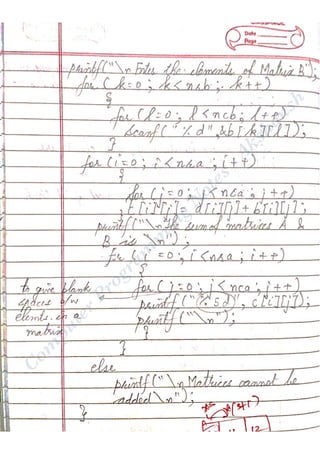 Date
Page
printf("\n Enter the elements of Matrix B");
for (k=0; k<nrb; k++)
{
for (l=0; l<ncb; l++)
scanf("%d", &b[k][l]);
}
for (i=0; i<nra; i++)
{
for (j=0; j<nca; j++)
c[i][j] = a[i][j] + b[i][j];
printf("\n the sum of matrices A &
B is \n");
for i=0; i<nra; i++)
{
to give blank
spaces b/w
elemts. in a
matrix
for (j=0; j<nca; j++)
printf("%5d", c[i][j]);
printf("\n");
}
}
else
printf("\n Matrices cannot be
added \n");
}
12
Computer Programming Notes